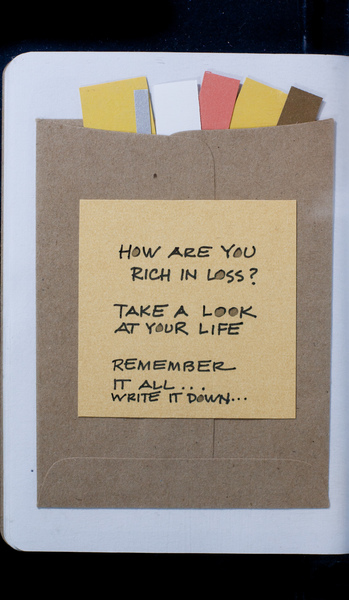 HOW ARE YOU
RICH IN LOSS?
TAKE A LOOK
AT YOUR LIFE
REMEMBER
IT ALL...
WRITE IT DOWN...